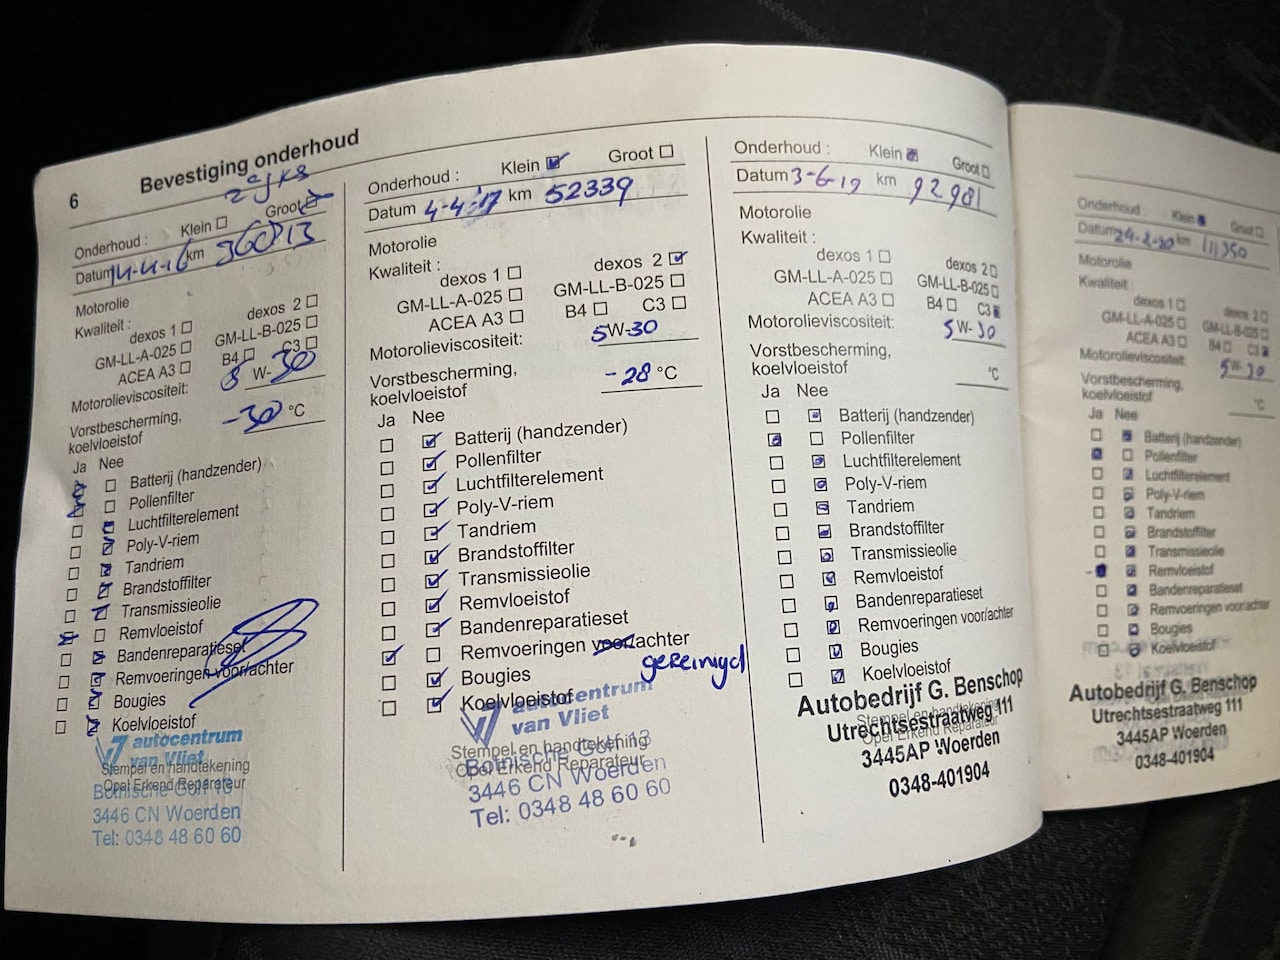 6
Bevestiging onderhoud
Onderhoud : Klein Groot
Datum 14-4-16 km 36013
Motorolie
Kwaliteit :
dexos 1 dexos 2
GM-LL-A-025 GM-LL-B-025
ACEA A3 B4 C3
Motorolieviscositeit: 5 W-30
Vorstbescherming,
koelvloeistof -30 °C
Ja Nee
Batterij (handzender)
Pollenfilter
Luchtfilterelement
Poly-V-riem
Tandriem
Brandstoffilter
Transmissieolie
Remvloeistof
Bandenreparatieset
Remvoeringen voor/achter
Bougies
Koelvloeistof
autocentrum
van Vliet
Stempel en handtekening
Opel Erkend Reparateur
Botnische Golf 13
3446 CN Woerden
Tel: 0348 48 60 60
Onderhoud : Klein Groot
Datum 4-4-'17 km 52339
Motorolie
Kwaliteit :
dexos 1 dexos 2
GM-LL-A-025 GM-LL-B-025
ACEA A3 B4 C3
Motorolieviscositeit: 5W-30
Vorstbescherming,
koelvloeistof -28 °C
Ja Nee
Batterij (handzender)
Pollenfilter
Luchtfilterelement
Poly-V-riem
Tandriem
Brandstoffilter
Transmissieolie
Remvloeistof
Bandenreparatieset
Remvoeringen voor/achter
gereinigd
Bougies
Koelvloeistof
autocentrum
van Vliet
Stempel en handtekening
Botnische Golf 13
Opel Erkend Reparateur
3446 CN Woerden
Tel: 0348 48 60 60
Onderhoud : Klein Groot
Datum 3-6-19 km 92981
Motorolie
Kwaliteit :
dexos 1 dexos 2
GM-LL-A-025 GM-LL-B-025
ACEA A3 B4 C3
Motorolieviscositeit: 5W-30
Vorstbescherming,
koelvloeistof °C
Ja Nee
Batterij (handzender)
Pollenfilter
Luchtfilterelement
Poly-V-riem
Tandriem
Brandstoffilter
Transmissieolie
Remvloeistof
Bandenreparatieset
Remvoeringen voor/achter
Bougies
Koelvloeistof
Autobedrijf G. Benschop
Stempel en handtekening
Utrechtsestraatweg 111
Opel Erkend Reparateur
3445AP Woerden
0348-401904
Onderhoud : Klein Groot
Datum 24-2-20 km 111350
Motorolie
Kwaliteit
dexos 1 dexos 2
GM-LL-A-025 GM-LL-B-025
ACEA A3 B4 C3
Motorolieviscositeit: 5W-30
Vorstbescherming,
koelvloeistof °C
Ja Nee
Batterij (handzender)
Pollenfilter
Luchtfilterelement
Poly-V-riem
Tandriem
Brandstoffilter
Transmissieolie
Remvloeistof
Bandenreparatieset
Remvoeringen voor/achter
Bougies
Koelvloeistof
Autobedrijf G. Benschop
Utrechtsestraatweg 111
3445AP Woerden
0348-401904